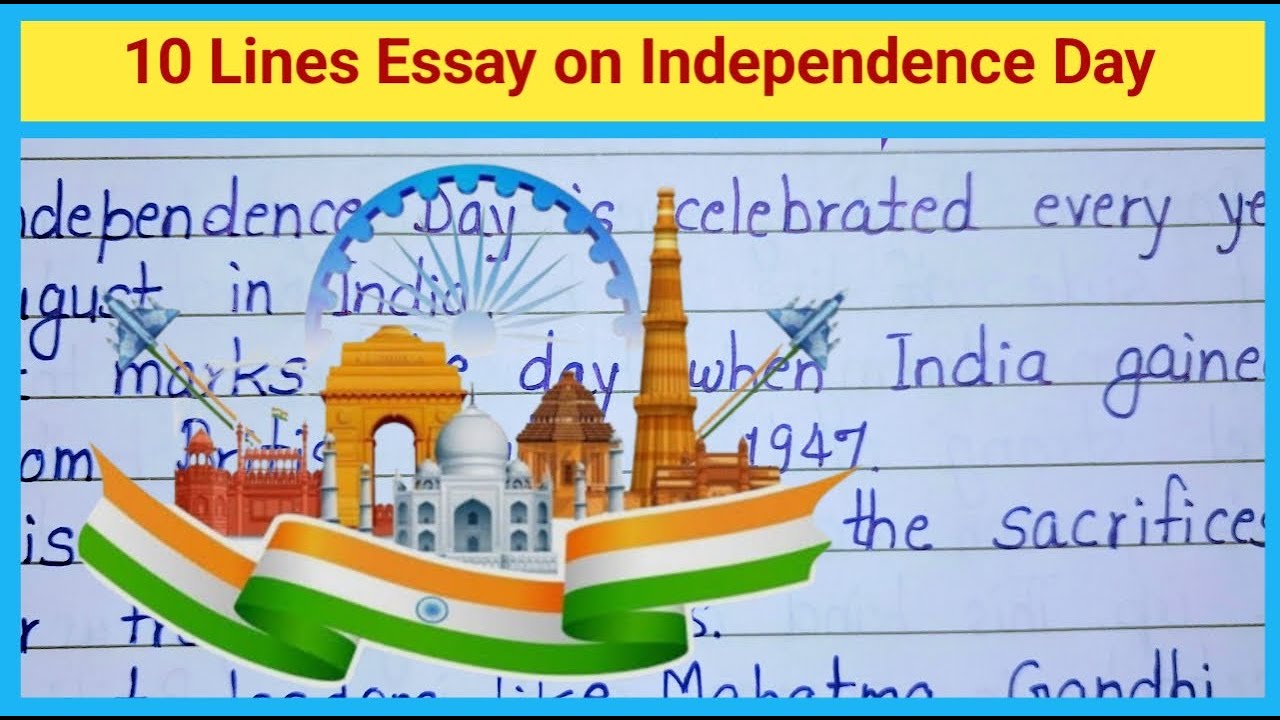 10 Lines Essay on Independence Day
ndependence Day is celebrated every ye
ugust in India.
marks day when India gaine
om 1947.
is the sacrifices
r s.
leaders like Mahatma Gandhi